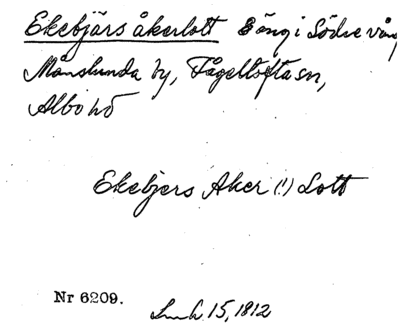 Ekebjärs åkerlott äng i Södre vång
Månslunda by, Fågeltofta sn,
Albo hd
Ekebjers Aker (!) Lott
Nr 6209.
15, 1812